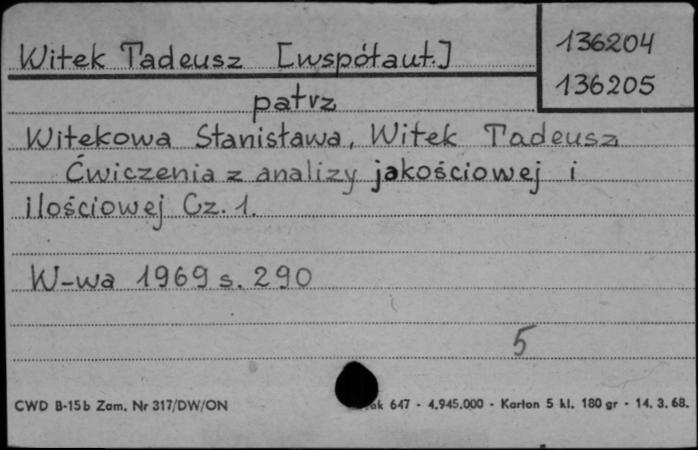 Witek Tadeusz [współaut.]
136204
136205
patrz
Witekowa Stanisława, Witek Tadeusz
Ćwiczenia z analizy jakościowej i
ilościowej Cz. 1.
W-wa 1969 s. 290
5
CWD B-15b Zam. Nr 317/DW/ON
647 - 4.945.000 - Karton 5 kl. 180 gr - 14. 3. 68.